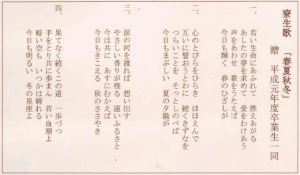 寮生歌 「春夏秋冬」
贈 平成元年度卒業生一同
一、若い生命にあふれて 燃えあがる
あしたの夢を求めて 愛をわけあう
声をあわせ 歌をうたえば
今日も輝く 春のひざしが
二、心のとびらをひらき ほほえんで
互いに髪おうとわに 続くきずなを
つらいことを そっとしのべば
今日もまぶしい 夏の夕陽が
三、涙の河を渡れば 想い出す
やさしい香りが残る 遠いふるさと
今は共に あすにむかえば
今日もきこえる 秋のささやき
四、果てなく続くこの道 一歩づつ
手をとり共に歩まん 若い血潮よ
暗い空も いつかは晴れる
今日も明るい 冬の星座よ